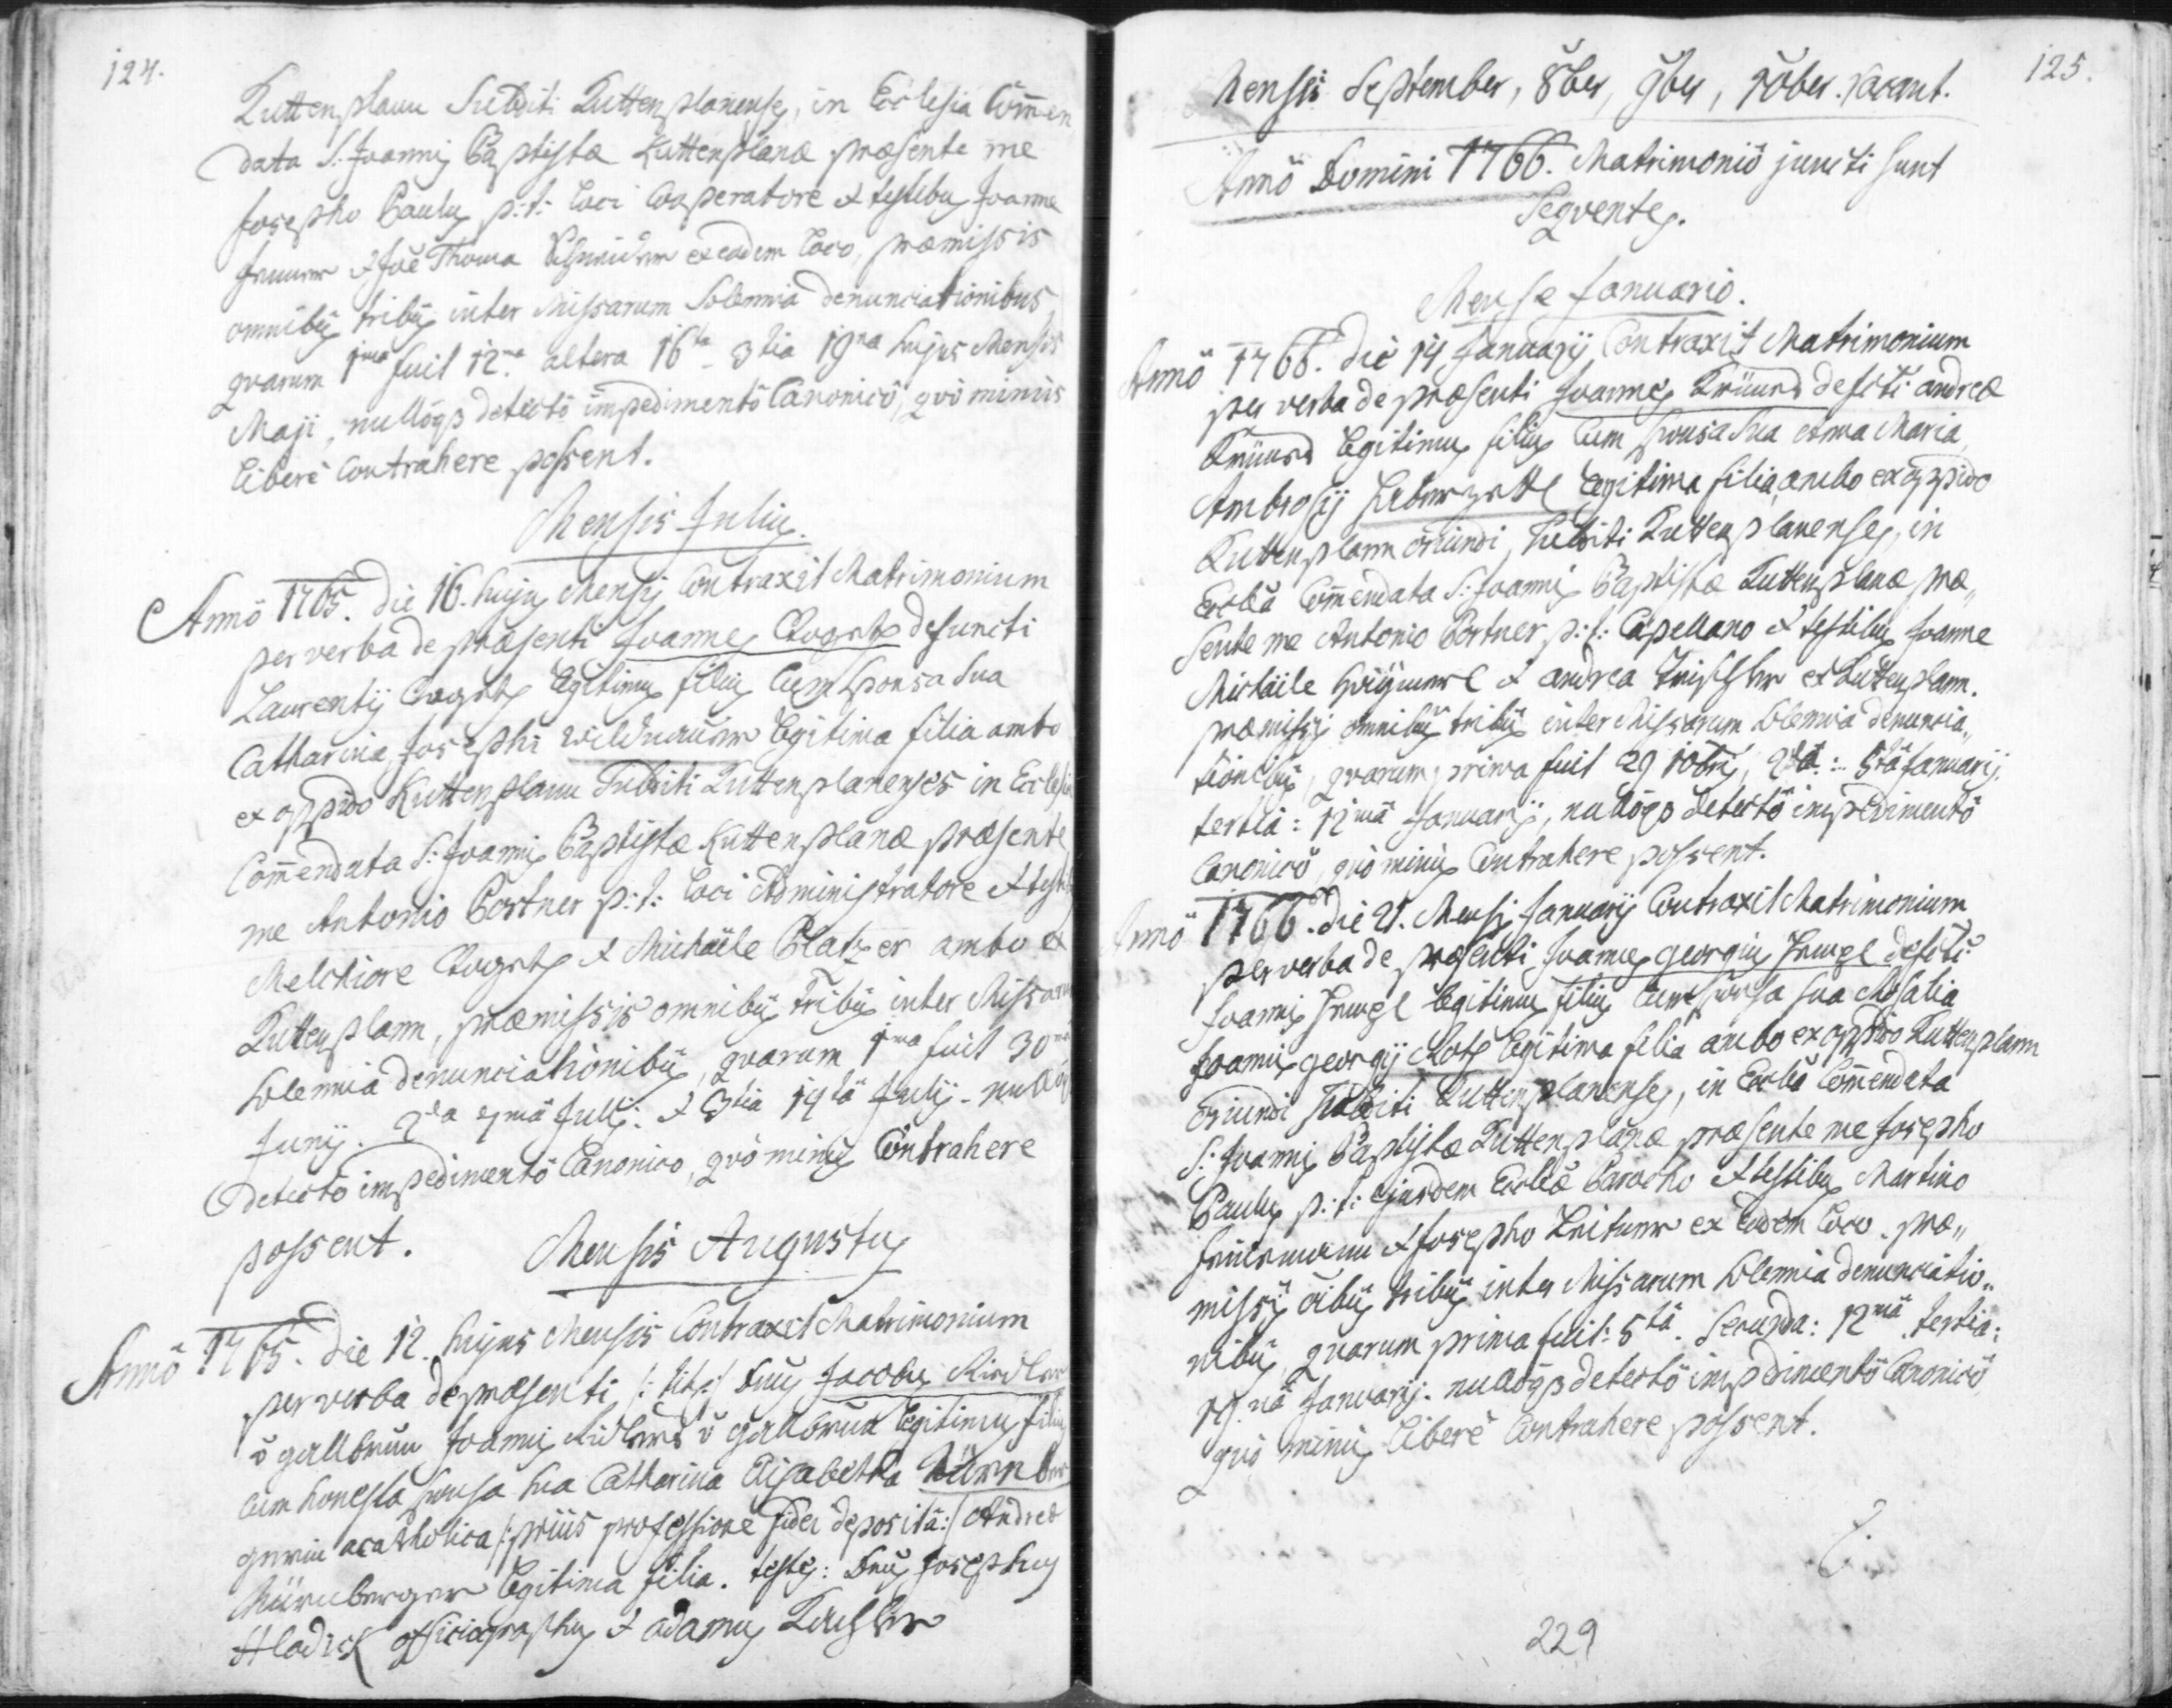 124.
Kuttenplann Subditi Kuttenplanenses, in Ecclesia Com̄en
data S: Joannis Baptistæ Kuttenplanæ præsente me
Josepho Paulus p: t: loci Cooperatore & testibus Joanne
& Joē Thoma ex eodem loco, præmissis
omnibus tribus inter Missarum Solemnia denunciationibus,
quarum 1ma fuit 12ma altera 16ta 3tia 19na hujus Mensis
Maji, nullōqs detectō impedimentō Canonicō, quò minùs
liberè Contrahere possent.
Mensis Julius.
Annō 1765. die 16. hujus Mensis Contraxit Matrimonium
per verba de præsenti Joannes defuncti
Laurentij legitimus filius cum Sponsa Sua
Catharina Josephi legitima filia ambo
ex oppido Kuttenplann Subditi Kuttenplanenses in Ecclesia
Com̄endata S: Joannis Baptistæ Kuttenplanæ præsente
me Antonio Portner p: t: loci Administratore & testibus
Melchiore & Michäele Platzer ambo ex
Kuttenplann, præmissis omnibus tribus inter Missarum
Solemnia denunciationibus, quarum 1ma fuit 30ma
Junij. 2da 7mâ Julij: & 3tia 14tâ Julij. nullōqs
detectō impedimentō Canonico, quò minùs Contrahere
possent.
Mensis Augustus
Annō 1765. die 12. hujus Mensis Contraxit Matrimonium
per verba de præsenti /: tit: / Dnus Jacobus
v Joannis v legitimus filius
cum honesta sponsa sua Catharina Elisabetha Nürnber
gerin acatholica /: priùs professione fidei depositâ: / Andreæ
Nürnberger legitima filia. testes: Dnus Josephus
Hladick officiographus & Adamus
125.
Mensis September, 8ber, 9ber, 10ber. vacant.
Annō Domini 1766. Matrimoniō juncti sunt
Seqventes.
Mense Januario.
Annō 1766. die 14 Januarij Contraxit Matrimonium
per verba de præsenti Joannes def̄cti Andreæ
legitimus filius cum sponsa sua Maria
Ambrosij legitima filia, ambo ex oppido
Kuttenplann oriundi, Subditi Kuttenplanenses, in
Eccl̄a Com̄endata S: Joannis Baptistæ Kuttenplanæ præ„
sente me Antonio Portner p: t: Capellano & testibus Joanne
Michäile & Andrea ex Kuttenplann.
præmissis omnibus tribus inter Missarum Solemnia denuncia„
tionibus, quarum prima fuit 29 10bris, 2da: 5tâ Januarij.
tertia: 12mâ Januarij, nullōqs detectō impedimentō
Canonicō, quò minùs Contrahere possent.
Annō 1766. die 21. Mensis Januarij Contraxit Matrimonium
per verba de præsenti Joannes Georgius def̄cti
Joannis legitimus filius cum sponsa sua Rosalia
Joannis Georgij legitima filia ambo ex oppido Kuttenplann
oriundi Subditi Kuttenplanenses, in Eccl̄a Com̄endata
S: Joannis Baptistæ Kuttenplanæ præsente me Josepho
Paulus p: t: ejusdem Eccl̄æ Parocho & testibus Martino
& Josepho ex eodem loco. præ„
missis ōibus tribus inter Missarum Solemnia denunciatio„
nibus, quarum prima fuit: 5tâ. Secunda: 12mâ. tertia:
19.nâ Januarij. nullōqs detectō impedimentō Canonicō
quò minùs liberè Contrahere possent.
229